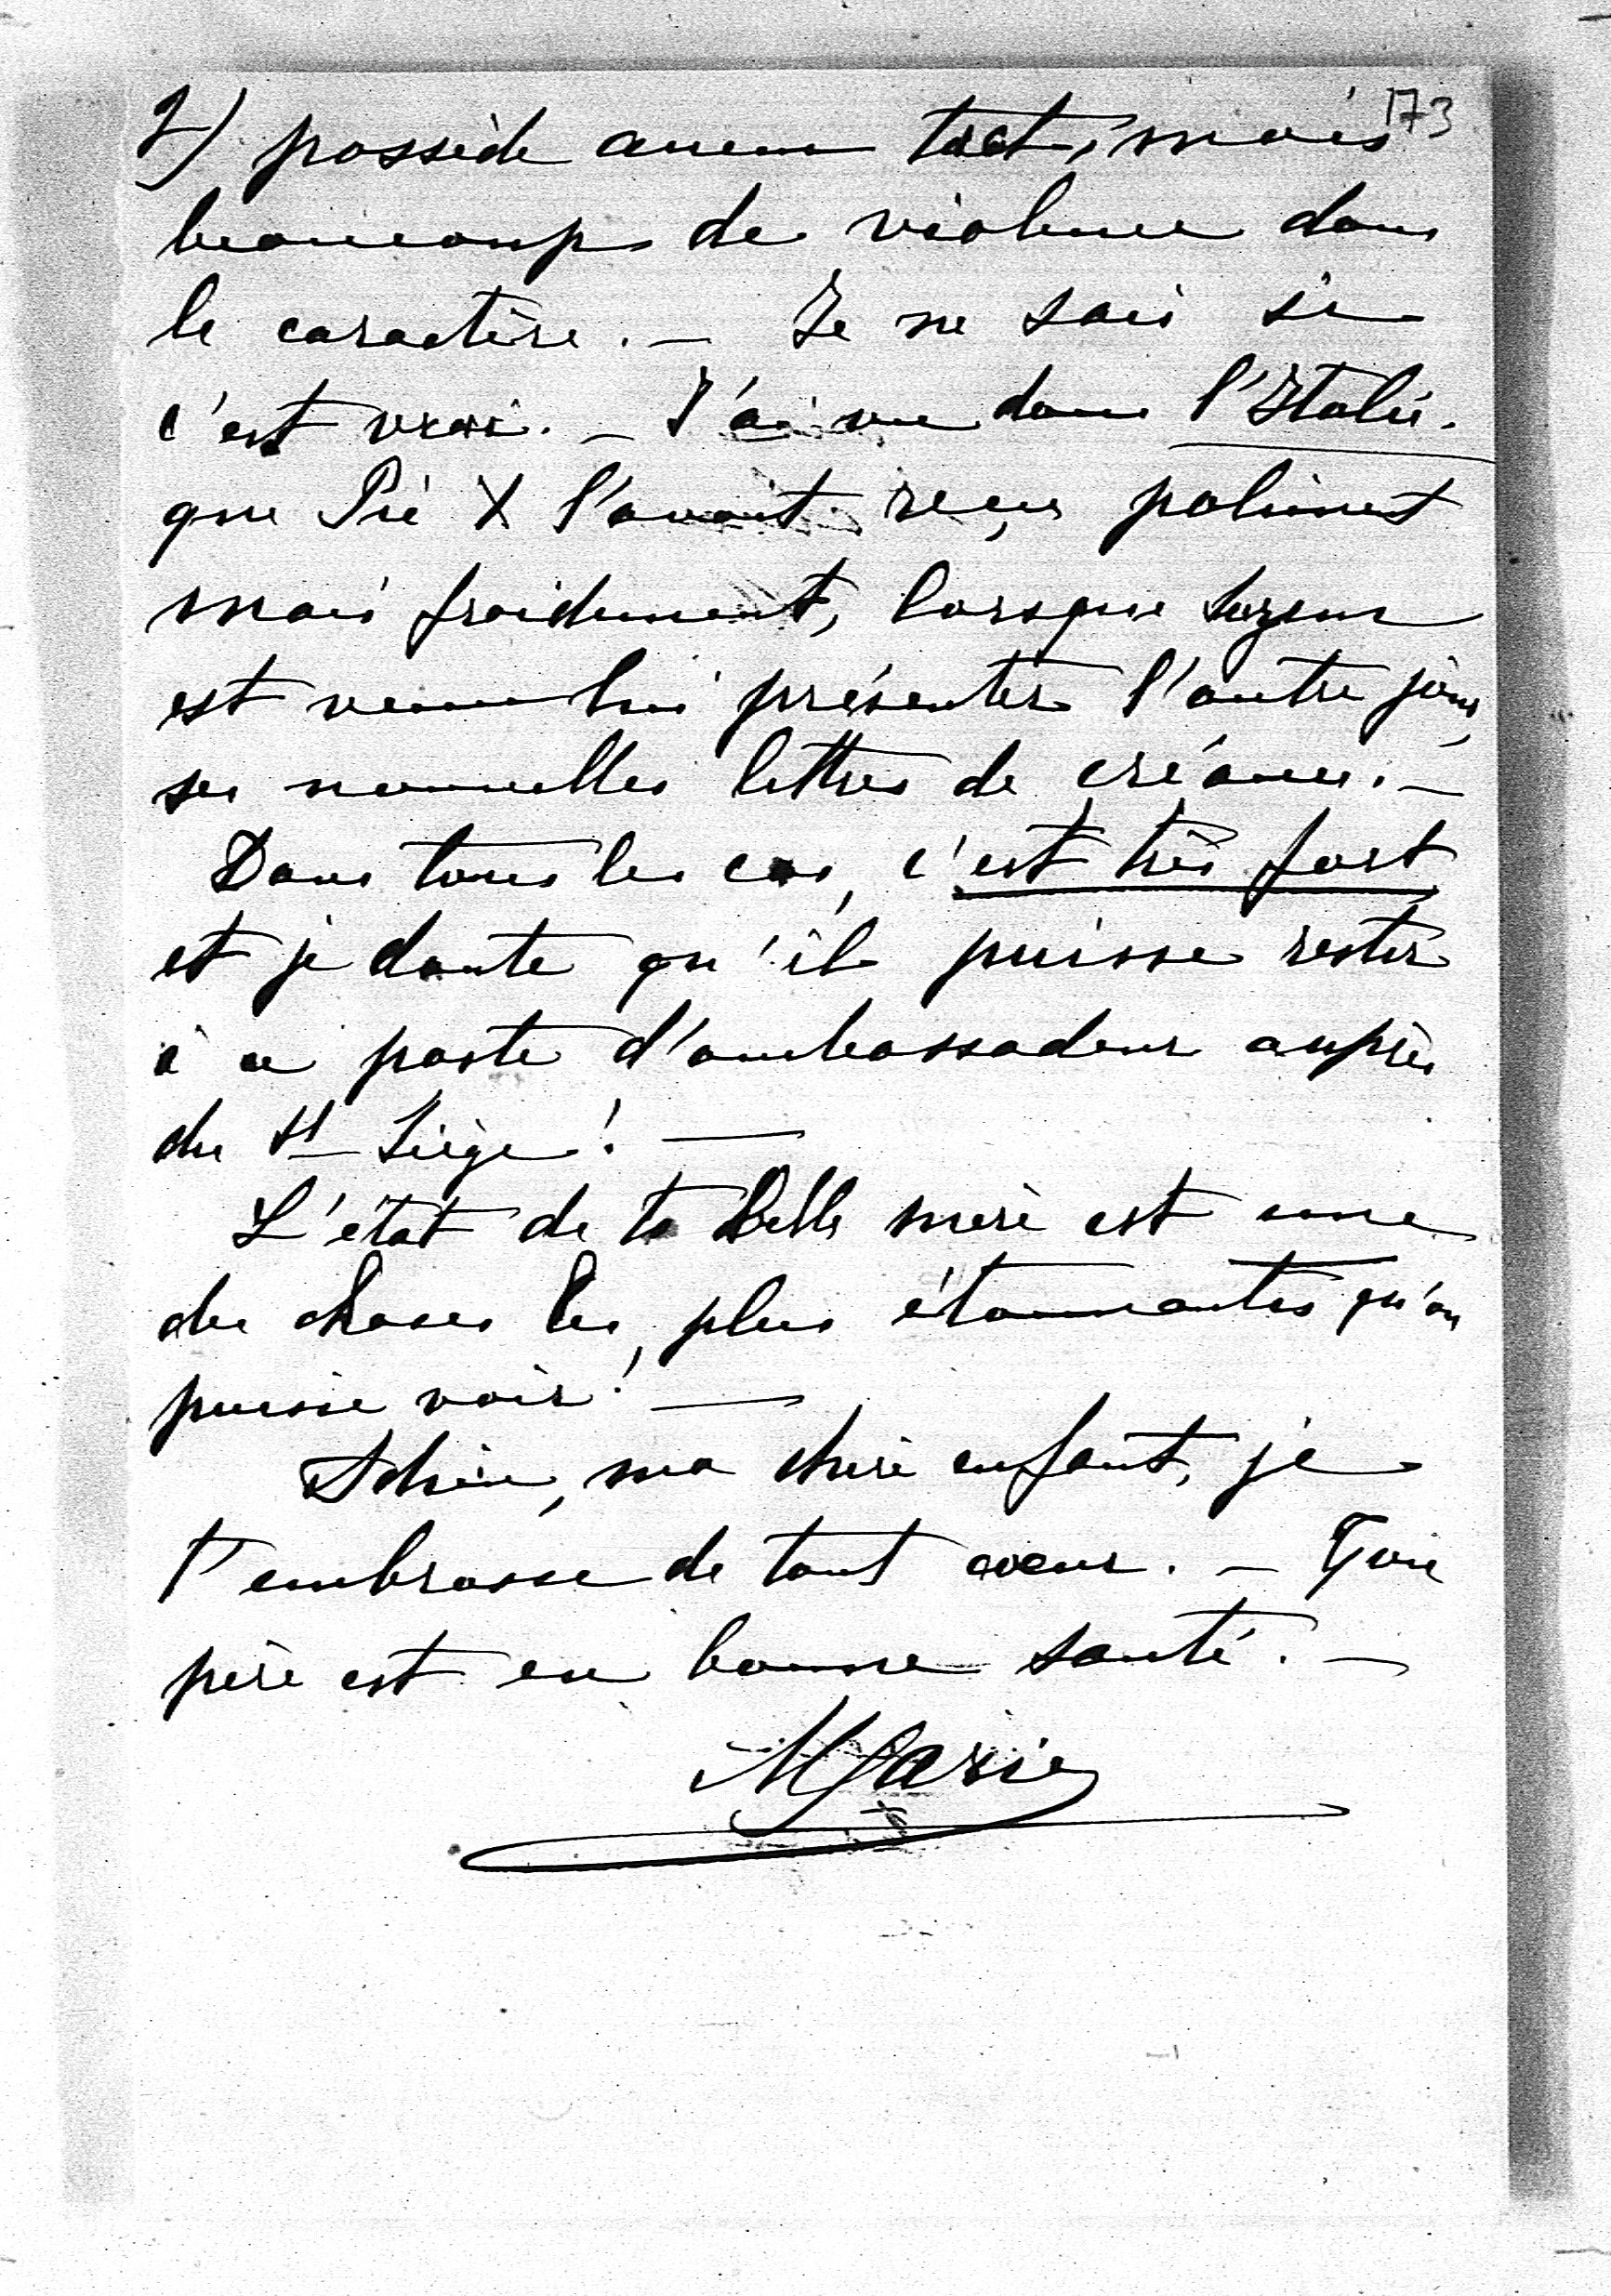 173
2) possède aucun tact, mais
beaucoup de violence dans
le caractère. — Je ne sais si
c'est vrai. — J'ai vu dans l'Italie.
que Pie X l'avait reçu poliment
mais froidement, lorsque
est venu lui présenter l'autre jour,
ses nouvelles lettres de créance. —
Dans tous les cas, c'est très fort
et je doute qu'il puisse rester
à ce poste d'ambassadeur auprès
du St Siège! —
L'état de ta belle mère est une
des choses les plus étonnantes qu'on
puisse voir! —
Adieu, ma chère enfant, je
t'embrasse de tout coeur. — Ton
père est en bonne santé. —
Marie